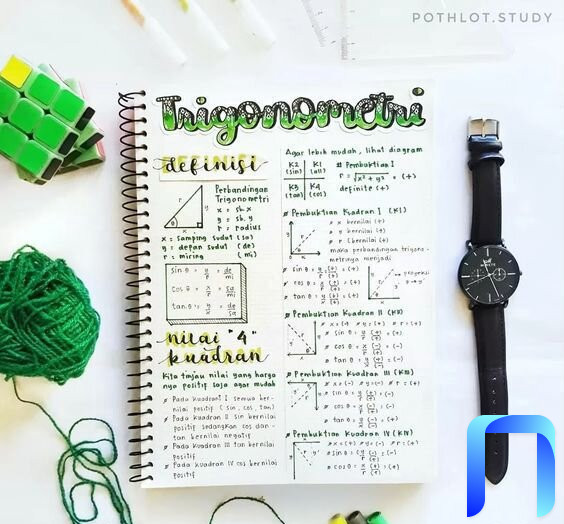 POTHLOT.STUDY
Trigonometri
definisi
Perbandingan
Trigonometri
x = sb. x
y = sb. y
r = radius
x = samping sudut (sa)
y = depan sudut (de)
r = miring (mi)
sin θ = y/r = de/mi
cos θ = x/r = sa/mi
tan θ = y/x = de/sa
nilai "4"
kuadran
Kita tinjau nilai yang harga
nya positif saja agar mudah
Pada kuadran I semua ber-
nilai positif (sin, cos, tan)
Pada kuadran II sin bernilai
positif sedangkan cos dan
tan bernilai negatif
Pada kuadran III tan bernilai
positif
Pada kuadran IV cos bernilai
positif
Agar lebih mudah, lihat diagram
K2 (sin) K1 (all)
K3 (tan) K4 (cos)
# Pembuktian I
r = √x² + y² = (+)
definite (+)
Pembuktian Kuadran I (KI)
x bernilai (+)
y bernilai (+)
r (bernilai (+)
maka perbandingan trigono-
metrinya menjadi
sin θ = y/r = (+)/(+) = (+)
cos θ = x/r = (+)/(+) = (+)
tan θ = y/x = (+)/(+) = (+)
proyeksi
→ y'
Pembuktian Kuadran II (KII)
x = (-) # y = (+) # r = (+)
sin θ = y/r = (+)/(+) = (+)
cos θ = x/r = (-)/(+) = (-)
tan θ = y/x = (+)/(-) = (-)
Pembuktian Kuadran III (KIII)
x = (-) # y = (-) # r = (+)
sin θ = y/r = (-)/(+) = (-)
cos θ = x/r = (-)/(+) = (-)
tan θ = y/x = (-)/(-) = (+)
Pembuktian Kuadran IV (KIV)
x = (+) # y = (-) # r = (+)
sin θ = y/r = (-)/(+) = (-)
cos θ = x/r = (+)/(+) = (+)